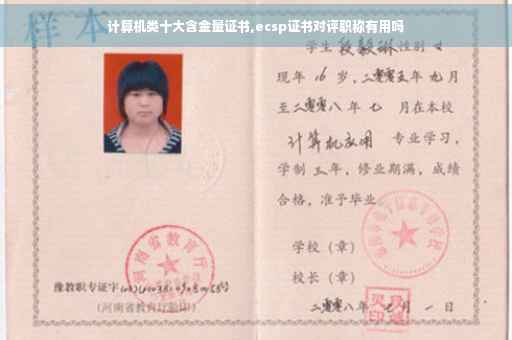 计算机类十大含金量证书,ecsp证书对评职称有用吗
样本
学生 性别 女
现年 16 岁,二零零五年 九 月
至二零零八 年 七 月在本校
计算机应用 专业学习,
学制 三 年,修业期满,成绩
合格,准予毕业
学校(章)
校长(章)
河南省教育厅
豫教职专证字
(河南省教育厅验印)
二零零八年 月 一 日